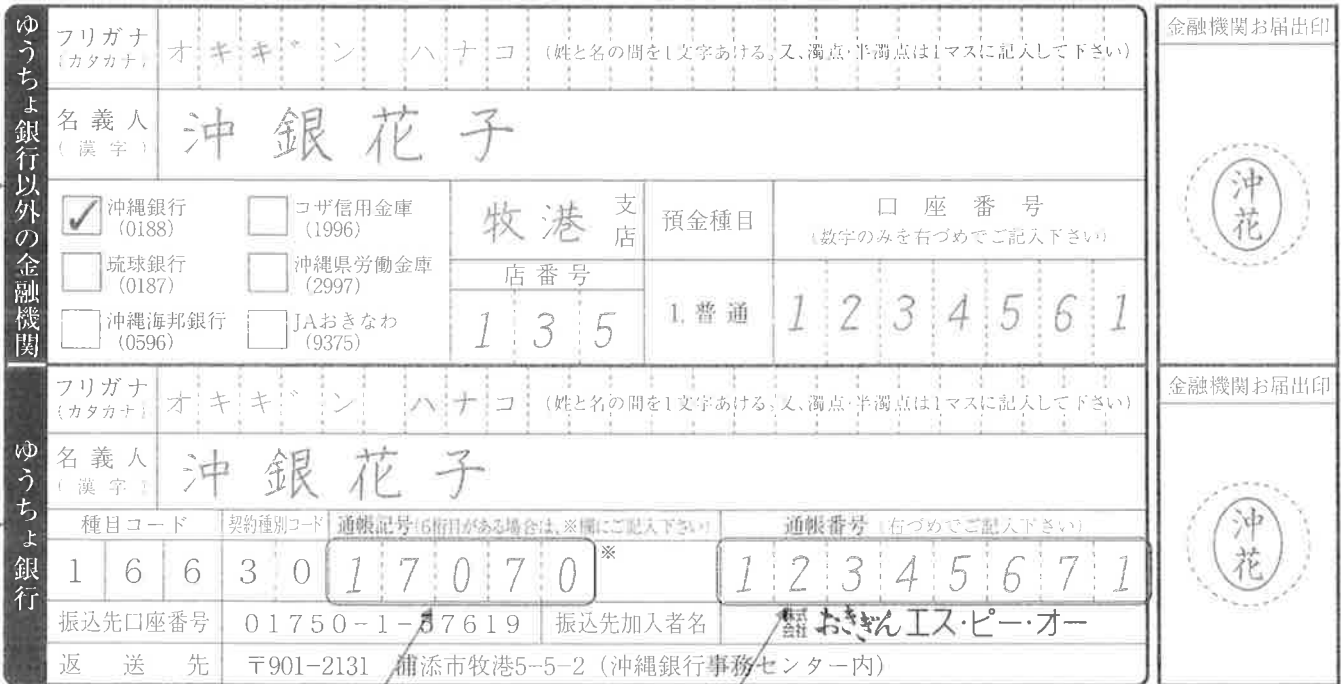 ゆうちょ銀行以外の金融機関
フリガナ
(カタカナ)
オキギン ハナコ (姓と名の間を1文字あける。又、濁点・半濁点は1マスに記入して下さい)
名義人
(漢字)
沖銀花子
沖縄銀行
(0188)
コザ信用金庫
(1996)
琉球銀行
(0187)
沖縄県労働金庫
(2997)
沖縄海邦銀行
(0596)
JAおきなわ
(9375)
牧港 支店
店番号
135
預金種目
1. 普通
口座番号
(数字のみを右づめでご記入下さい)
1234561
金融機関お届出印
沖花
ゆうちょ銀行
フリガナ
(カタカナ)
オキギン ハナコ (姓と名の間を1文字あける。又、濁点・半濁点は1マスに記入して下さい)
名義人
(漢字)
沖銀花子
種目コード 契約種別コード 通帳記号(6桁目がある場合は、※欄にご記入下さい) 通帳番号(右づめでご記入下さい)
166 30 17070 ※ 12345671
振込先口座番号 01750-1-37619 振込先加入者名 株式会社 おきぎんエス・ピー・オー
返送先 〒901-2131 浦添市牧港5-5-2(沖縄銀行事務センター内)
金融機関お届出印
沖花